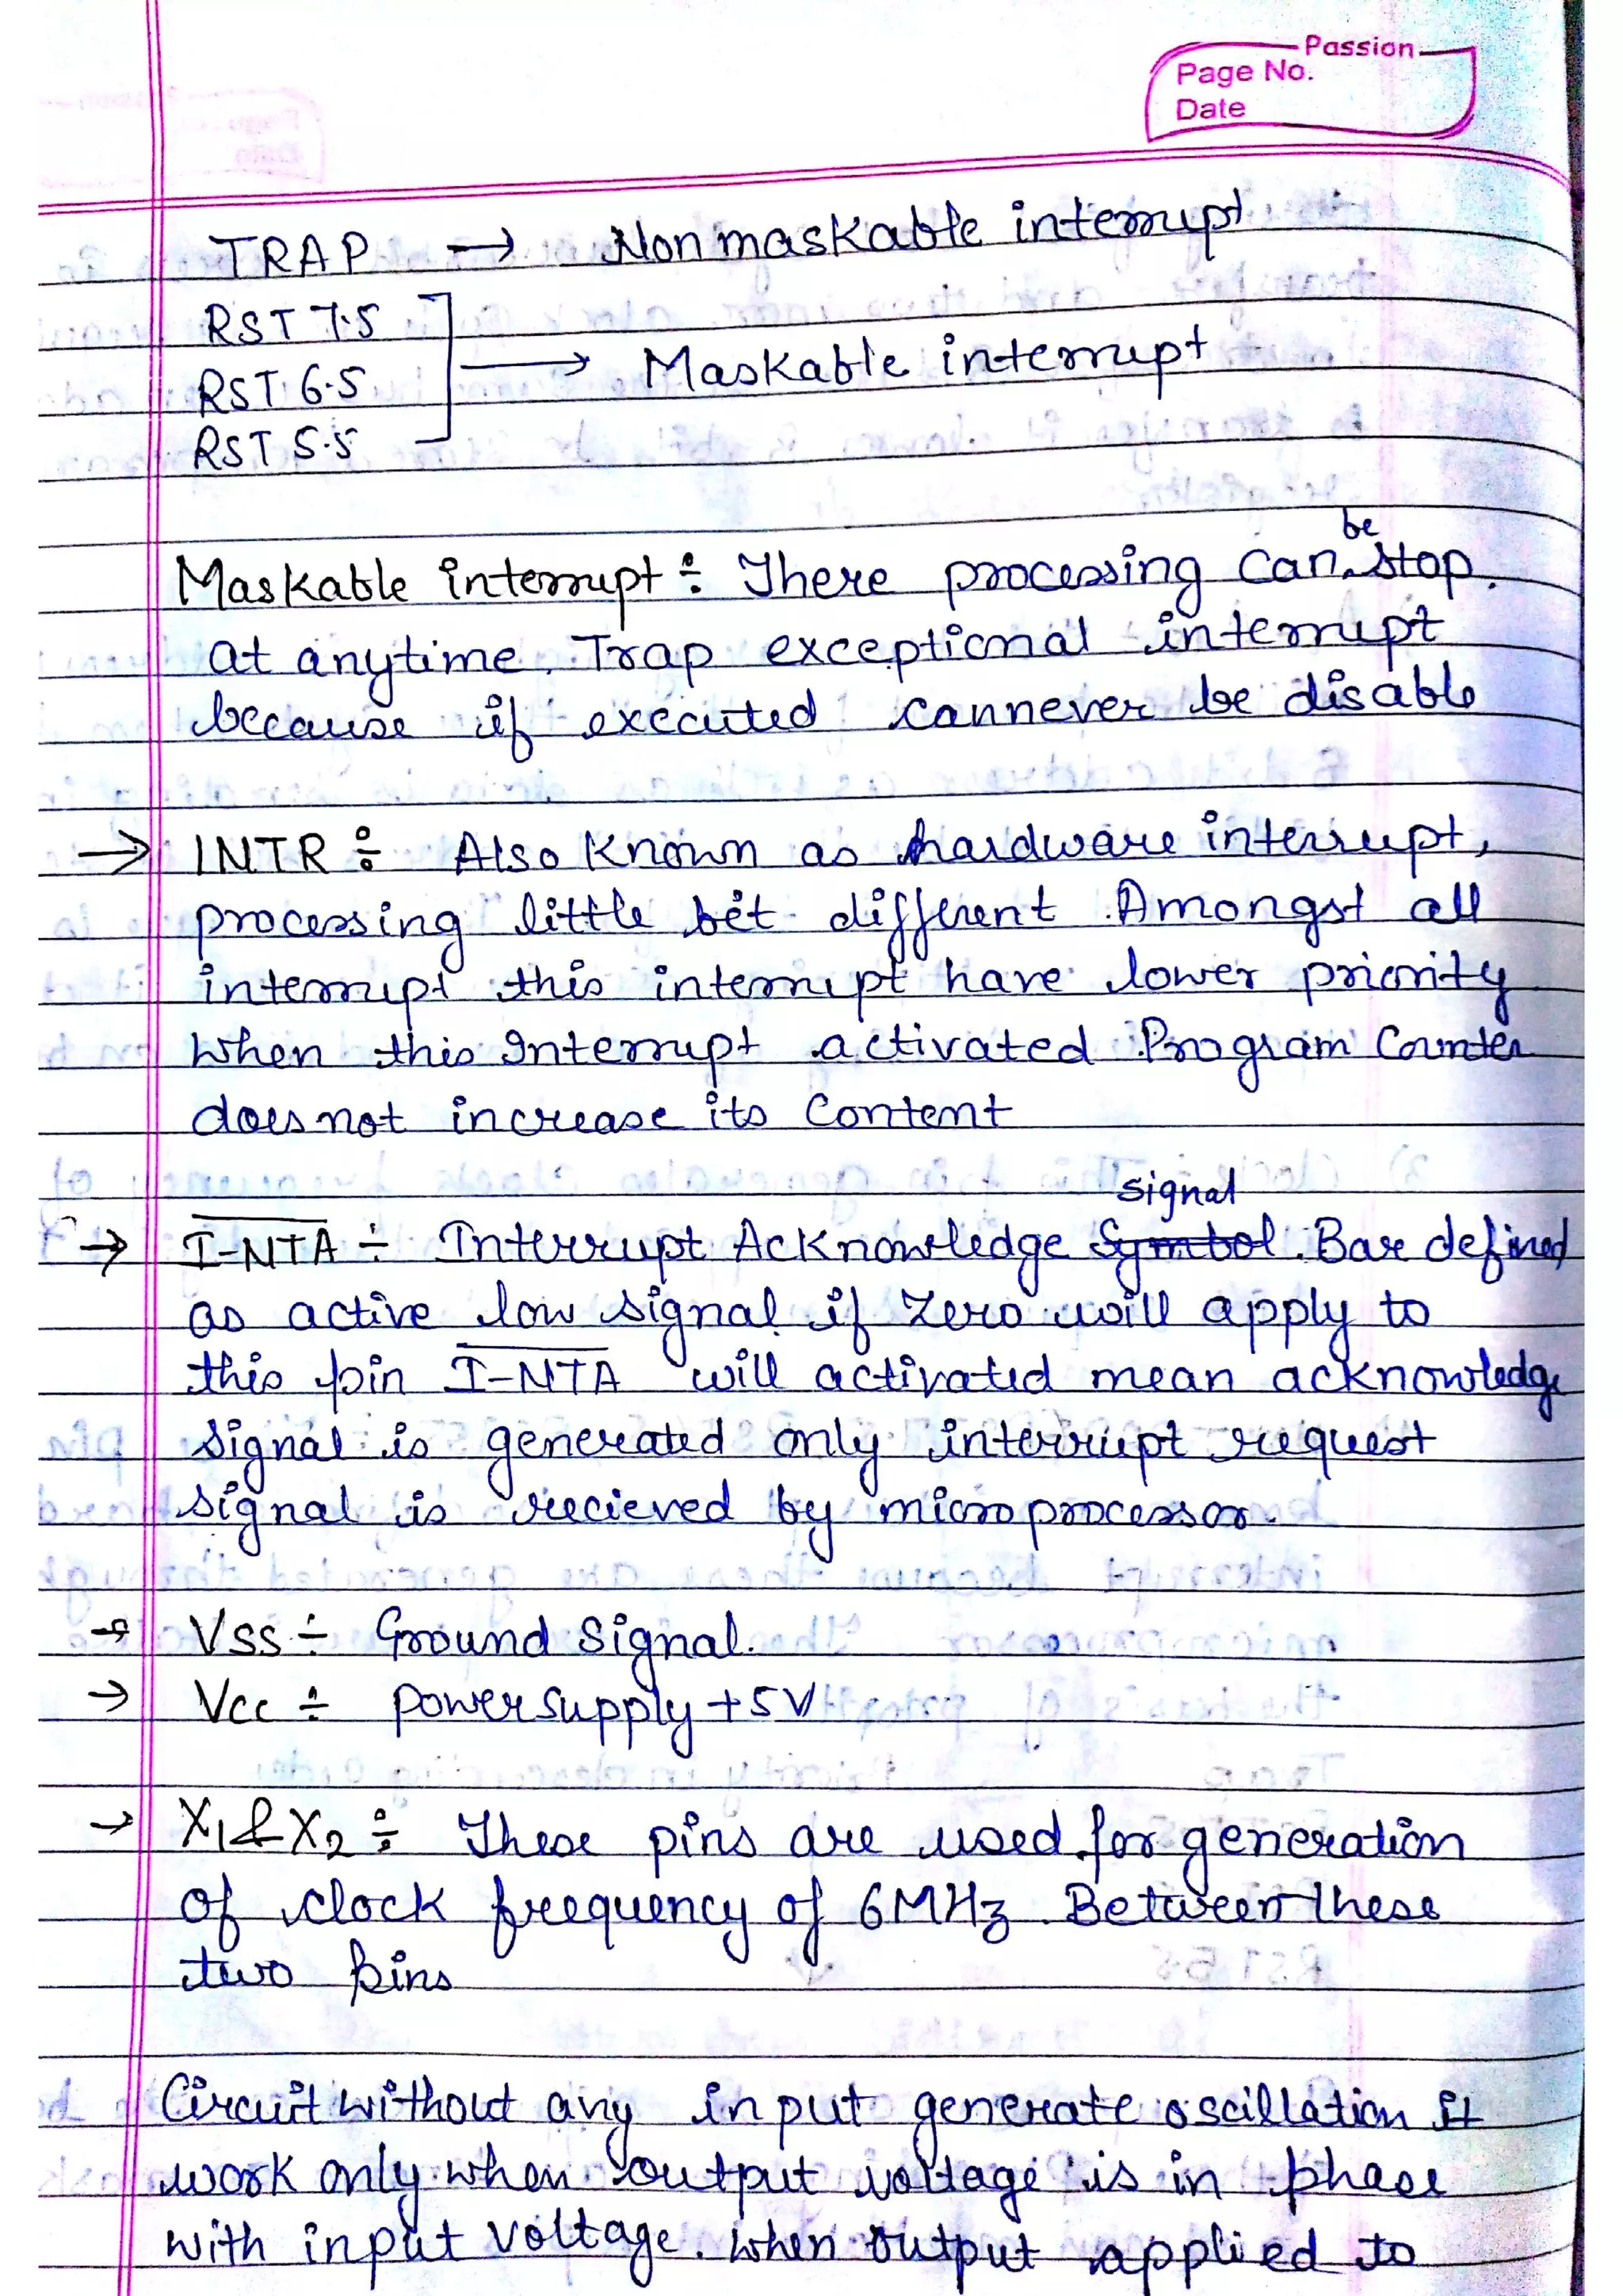 Passion
Page No.
Date
TRAP → Nonmaskable interrupt
RST 7.5
RST 6.5 → Maskable interrupt
RST 5.5
Maskable interrupt ÷ There processing can be stop.
at anytime. Trap exceptional interrupt
because if executed cannever be disable
→ INTR ÷ Also known as hardware interrupt,
processing little bit different. Amongst all
interrupt this interrupt have lower priority
when this Interrupt activated Program Counter
does not increase its content
signal
→ I-NTA ÷ Interrupt Acknowledge Symbol. Bar defined
as active low signal if zero will apply to
this pin I-NTA will activated mean acknowledge
signal is generated only interrupt request
signal is recieved by microprocessor.
→ Vss ÷ Ground Signal.
→ Vcc ÷ power supply +5V
→ X1 & X2 ÷ These pins are used for generation
of clock freequency of 6MHz. Between these
two pins
Circuit without any input generate oscillation it
work only when output voltage is in phase
with input voltage. when output applied to